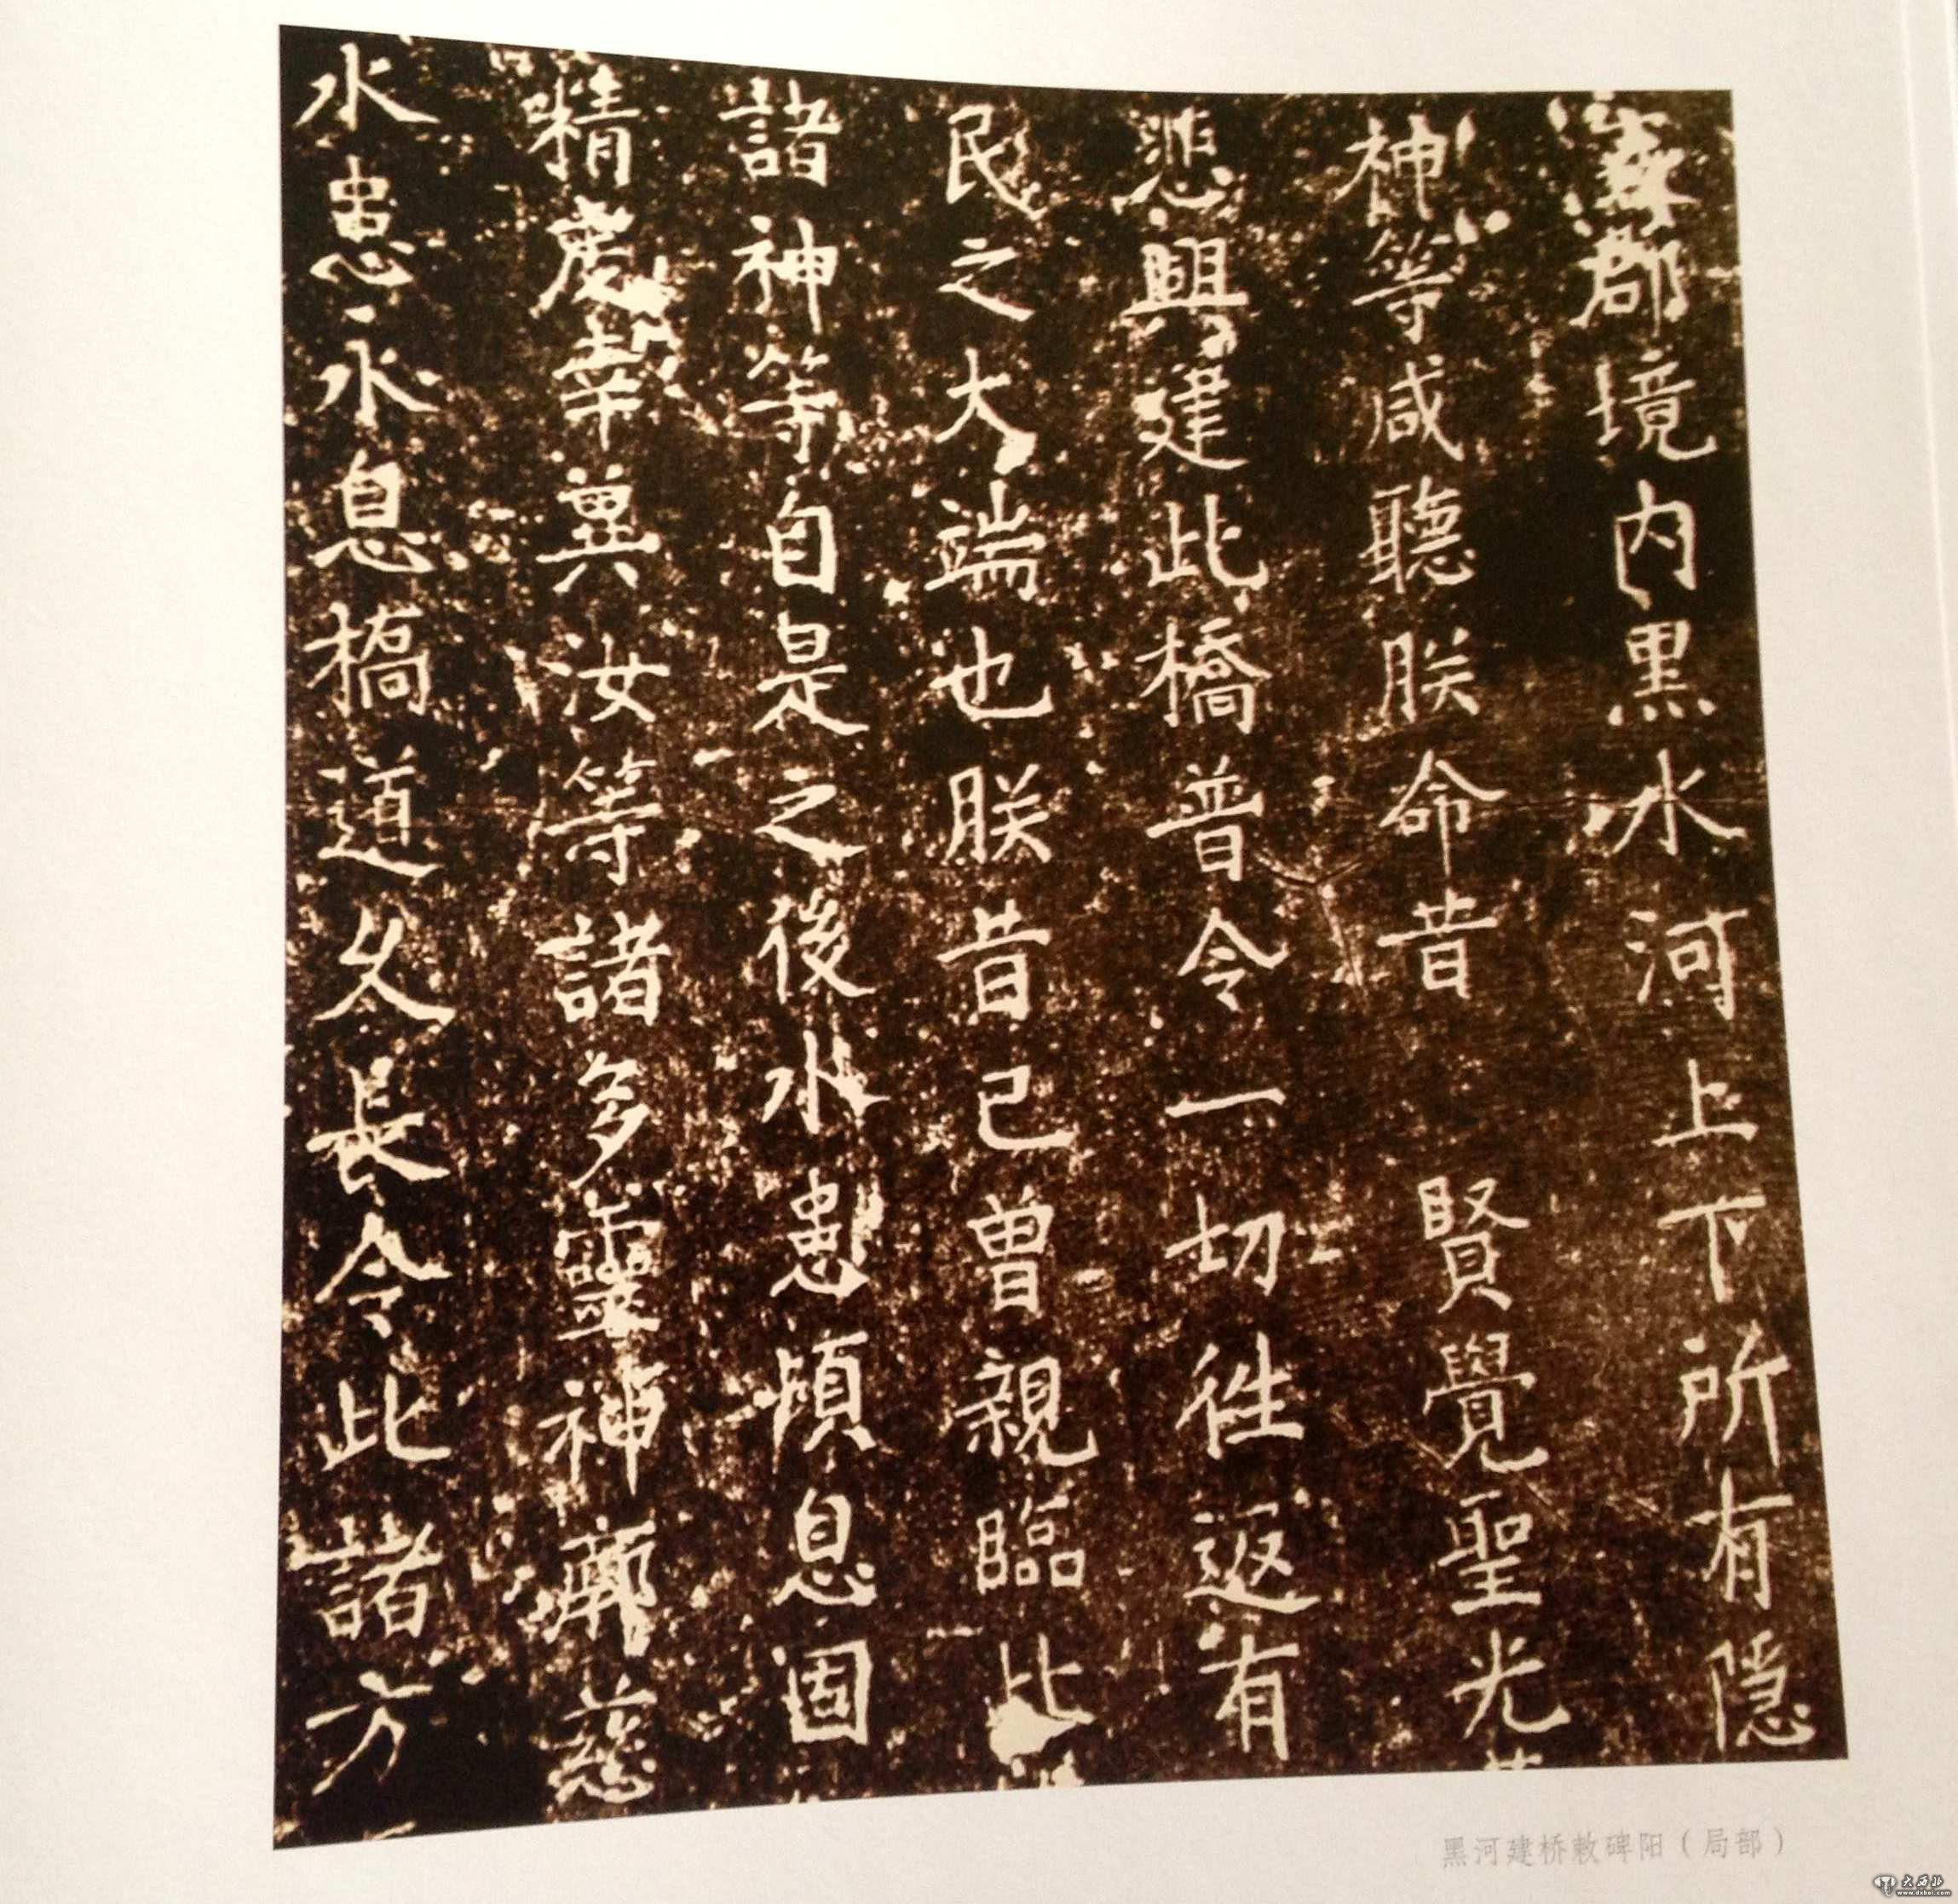 郡境内黑水河上下所有隱
神等咸聽朕命昔 賢覺聖光
悲興建此橋普令一切徃返有
民之大端也朕昔已曾親臨此
諸神等自是之後水患頓息固
精虔冀汝等諸多靈神廓慈
水患永息橋道久長令此諸方
黑河建桥敕碑阳（局部）
大西北
www.dxbei.com